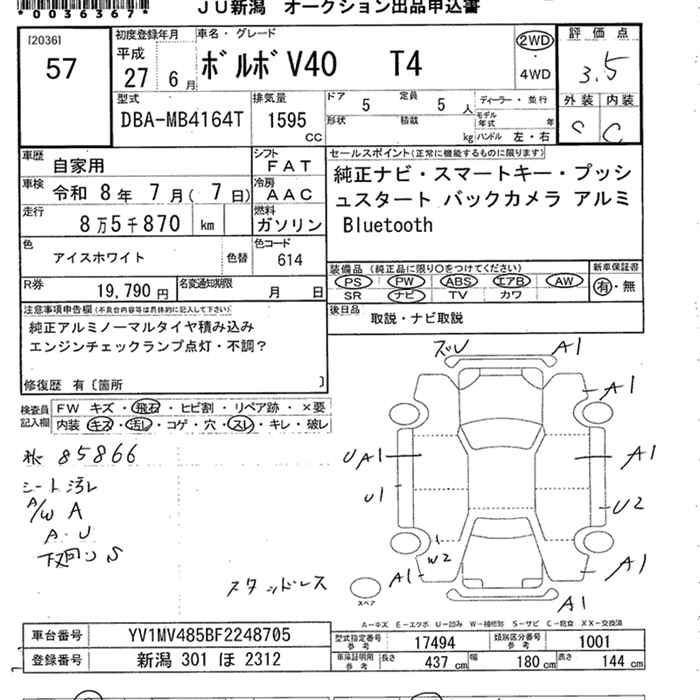 *0036367*
JU新潟 オークション出品申込書
[2036]
57
初度登録年月
平成
27 6 月
車名・グレード
ボルボV40 T4
2WD
・
4WD
評価点
3.5
外装 内装
C C
型式
DBA-MB4164T
排気量
1595
CC
ドア 5 定員 5 人
形状 積載 kg
ディーラー・並行
モデル年式 年
ハンドル 左・右
車歴 自家用
シフト FAT
車検 令和 8年 7月(7日)
冷房 AAC
走行 8万5千870 km
燃料 ガソリン
色 アイスホワイト 色替
色コード 614
セールスポイント(正常に機能するものに限ります)
純正ナビ・スマートキー・プッシ
ュスタート バックカメラ アルミ
Bluetooth
R券 19,790 円
名変通知期限 月 日
装備品(純正品に限り○をつけてください)
PS PW ABS エアB AW
SR ナビ TV カワ
新車保証書
有・無
後日品 取説・ナビ取説
注意事項申告欄(不具合内容等は具体的に記入して下さい)
純正アルミノーマルタイヤ積み込み
エンジンチェックランプ点灯・不調?
修復歴 有〔箇所 〕
検査員記入欄
FW キズ・飛石・ヒビ割・リペア跡・×要
内装 キズ・汚れ・コゲ・穴・スレ・キレ・破レ
85866
シート汚レ
A/W A
A・U
下廻りS
スタッドレス
ズレ A1
A1
UA1 A1
U1 U2
W2
A1 A1
A1
スペア
A-キズ E-エクボ U-凹み W-補修跡 S-サビ C-腐食 XX-交換済
車台番号 YV1MV485BF2248705
登録番号 新潟 301 ほ 2312
型式指定番号 参考 17494
類別区分番号 参考 1001
車庫証明用 参考 長さ 437 cm 幅 180 cm 高さ 144 cm